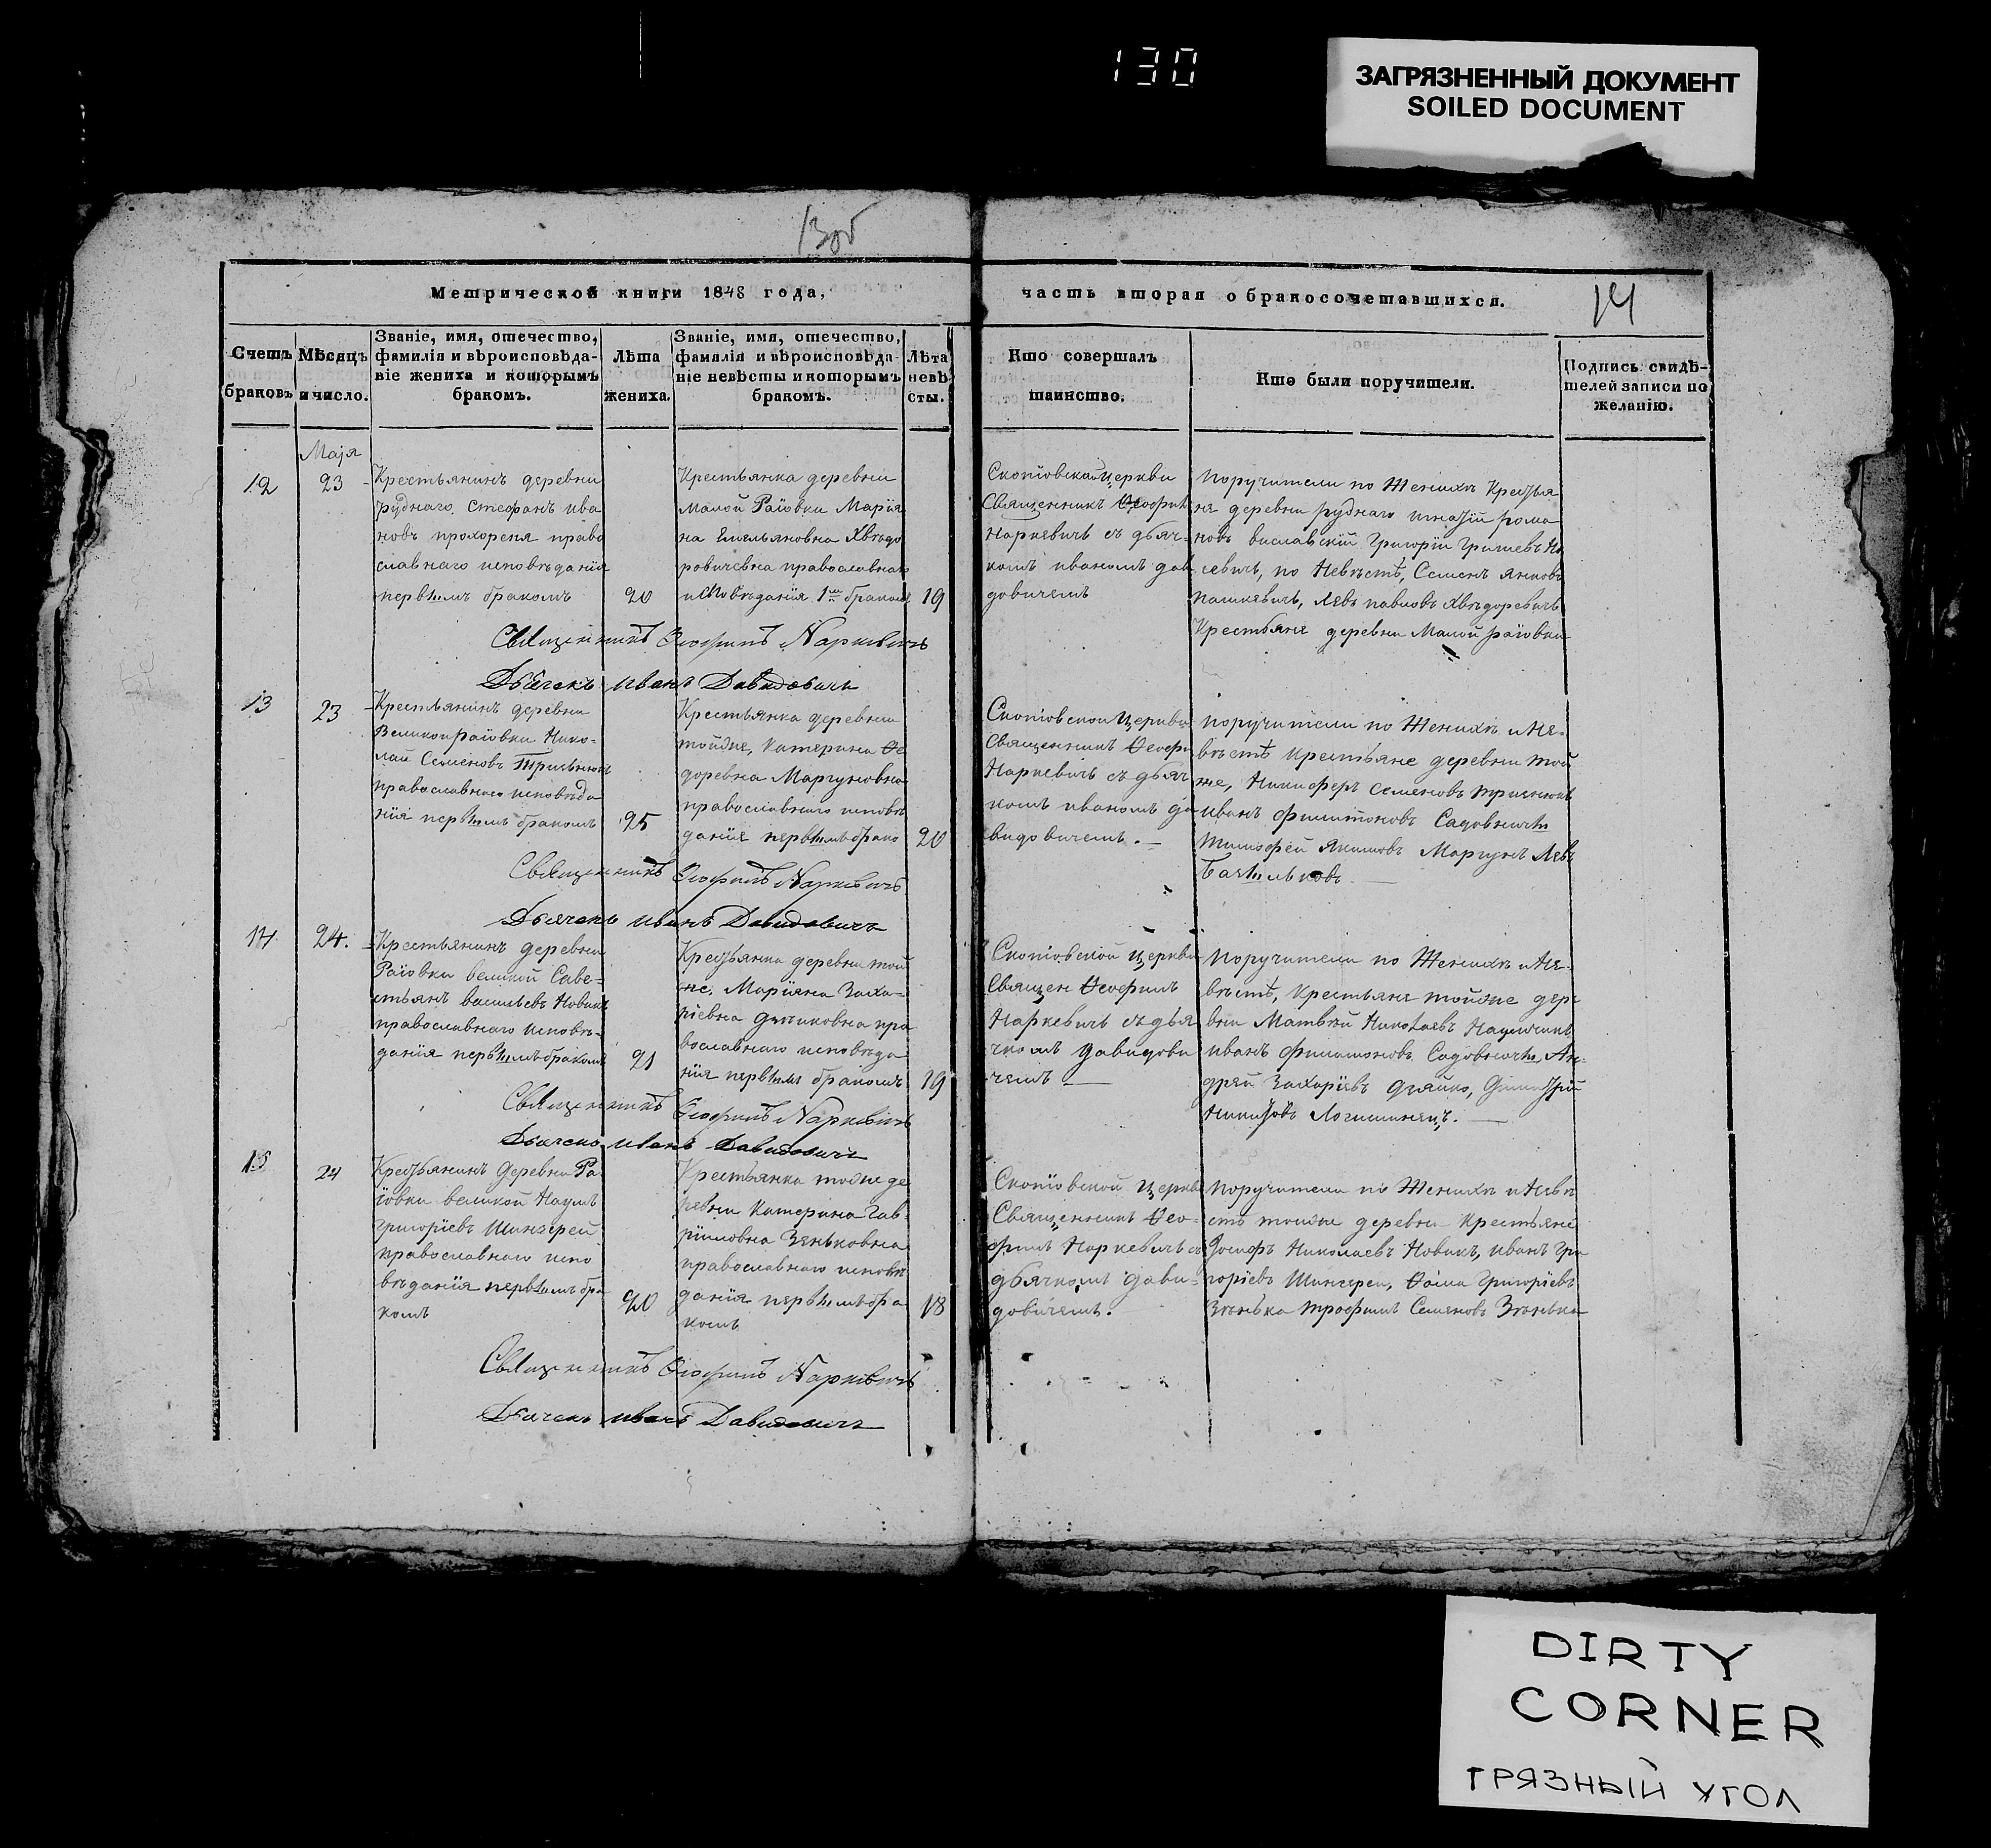 130
ЗАГРЯЗНЕННЫЙ ДОКУМЕНТ
SOILED DOCUMENT
13об
Метрической книги 1848 года,
часть вторая о бракосочетавшихся.
14
Счетъ браковъ
Мѣсяцъ и число.
Званіе, имя, отечество,
фамилія и вѣроисповѣда-
ніе жениха и которымъ
бракомъ.
Лѣта жениха.
Званіе, имя, отечество,
фамилія и вѣроисповѣда-
ніе невѣсты и которымъ
бракомъ.
Лѣта невѣ-
сты.
Кто совершалъ
таинство.
Кто были поручители.
Подпись свидѣ-
телей записи по
желанію.
Маія
12
23
Крестьянинъ деревни
руднаго, Стефанъ ива
новъ прохореня право
славнаго исповѣданія
первымъ бракомъ
20
Крестьянка деревни
малой Раіовки Марія
на Емельяновна Хвѣдо
ровичевна православнаго
исповѣданія 1мъ бракомъ
19
Скопіовской Церкви
Священникъ Ѳеофилъ
Наркевичъ съ дьяч-
комъ иваномъ дав
довичемъ
поручители по Женихѣ Крестья
не деревни руднаго игнатій рома
новъ виславскій Григорій
по Невѣстѣ, Семенъ янковъ
пашкевичъ, Левъ павловъ Хвѣдоревичъ
Крестьяне деревни Малой раіовки
Священникъ Ѳеофилъ Наркевичъ
Дьячекъ иванъ Давидовичъ
13
23
Крестьянинъ деревни
Великой раіовки Нико-
лай Семеновъ
православнаго исповѣда
нія первымъ бракомъ
25
Крестьянка деревни
тойже, Катерина Ѳе
доревна Маргуновна
православнаго исповѣ
данія первымъ брако
20
Скопіовской Церкви
Священникъ Ѳеофи
Наркевичъ съ дьяч
комъ иваномъ да
видовичемъ. —
поручители по Женихѣ и Не-
вѣстѣ крестьяне деревни той
же, Никиферъ Семеновъ
иванъ филимоновъ Садовничы
тимофей Якимовъ Маргунъ Левъ
Священникъ Ѳеофилъ Наркевичъ
Дьячекъ иванъ Давидовичъ
14
24.
Крестьянинъ деревни
Раіовки великой Саве-
стьянъ васильевъ Новикъ
православнаго исповѣ-
данія первымъ бракомъ
21
Крестьянка деревни той
же, Маріяна Заха-
ріевна пра
вославнаго исповѣда
нія первымъ бракомъ
19
Скопіовской Церкви
Священ Ѳеофилъ
Наркевичъ съ дья
чкомъ Давидови
чемъ —
поручители по Женихѣ и Не-
вѣстѣ, крестьяне тойже дер-
вни Матвѣй Николаевъ
иванъ филимоновъ Садовничы, Ан-
дрей Захаріевъ Дмитрій
Никитовъ Логишинецъ. —
Священникъ Ѳеофилъ Наркевичъ
Дьячекъ иванъ Давидовичъ
15
24
Крестьянинъ Деревни Ра
іовки великой Наумъ
григоріевъ Шингерей
православнаго испо
вѣданія первымъ бра
комъ
20
Крестьянка тойже де
ревни Катерина Гав-
ріиловна Зеньковна
православнаго исповѣ
данія первымъ бра
комъ
18
Скопіовской Церкви
Священникъ Ѳео-
филъ Наркевичъ съ
дьячкомъ Дави-
довичемъ.
поручители по Женихѣ и Невѣ
стѣ тойже деревни Крестьяне
Іосифъ Николаевъ Новикъ, иванъ Гри
горіевъ Шингереи, Ѳома Григоріевъ
Зѣнька трофимъ Семеновъ Зѣнька
Священникъ Ѳеофилъ Наркевичъ
Дьячекъ иванъ Давидовичъ
DIRTY
CORNER
ГРЯЗНЫЙ УГОЛ